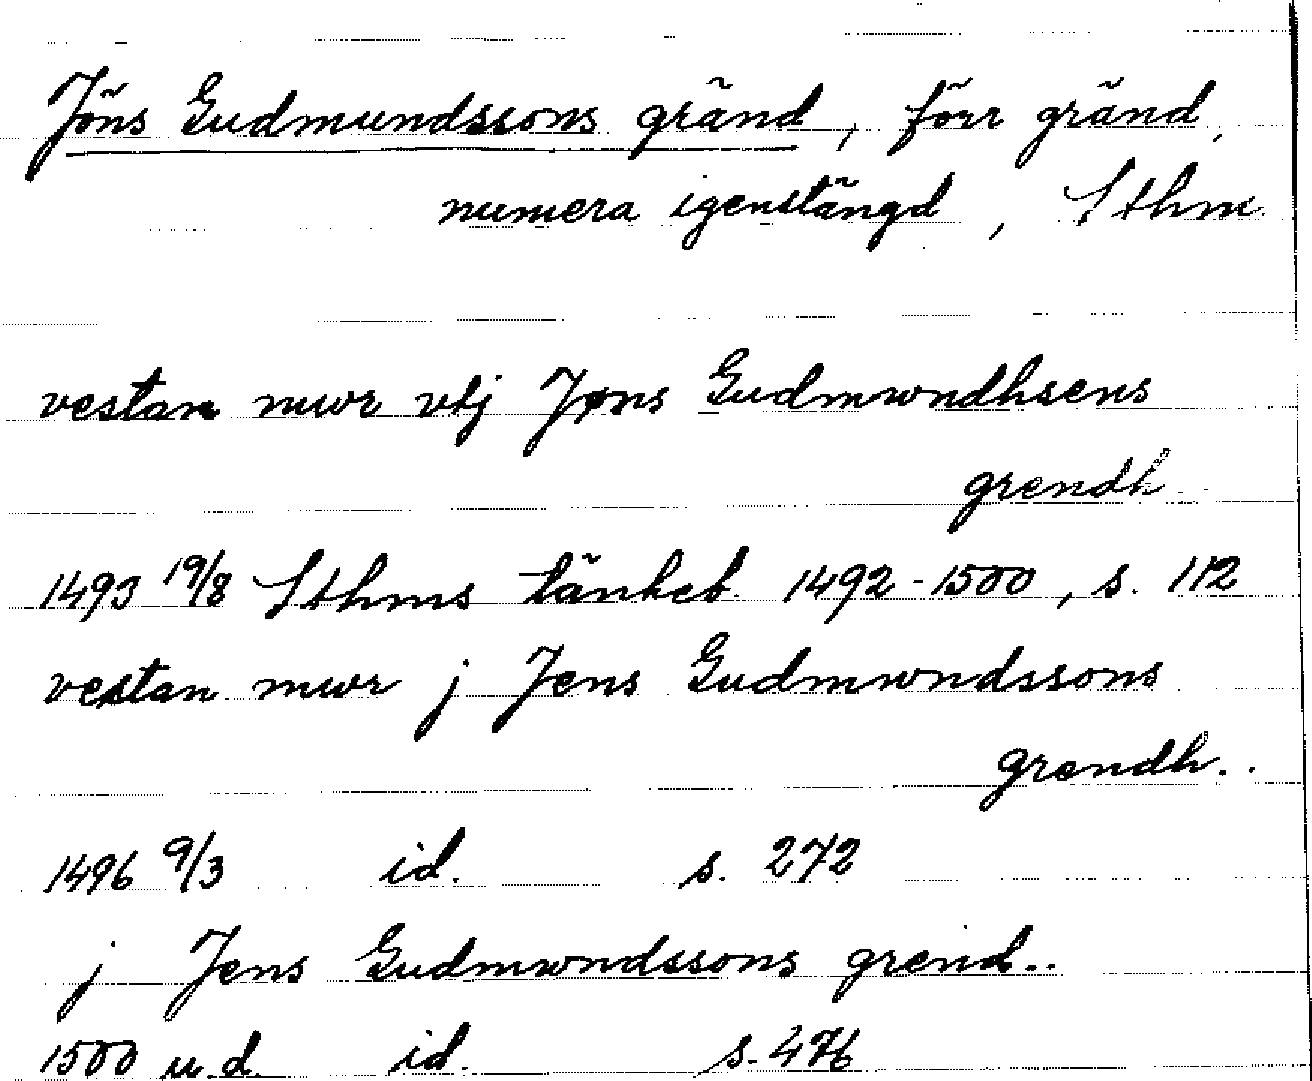 Jöns Gudmundssons gränd, förr gränd,
numera igenstängd, Sthm
vestan mwr vtj Jøns Gudmwndhsens
grendh
1493 19/8 Sthms tänkeb. 1492-1500, s. 112
vestan mwr j Jens Gudmwndssons
grendh..
1496 9/3 id. s. 272
j Jens Gudmwndssons grend..
1500 u.d. id. s. 476